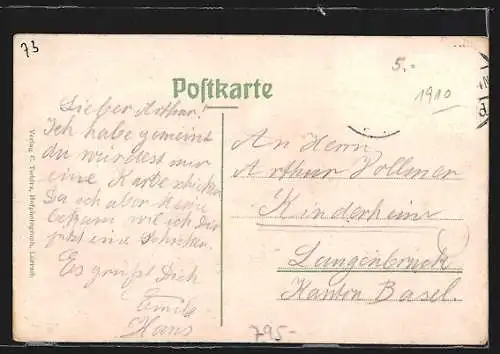 73
5.-
1910
Postkarte
Lieber Arthur!
Ich habe gemeint
du würdest mir
eine Karte schicken
Da ich aber keine
bekam will ich Dir
jetzt eine schicken.
Es grüßt Dich
Emil
Hans
An Herrn
Arthur Vollmer
Kinderheim
Langenbruck
Kanton Basel.
795-
Verlag C. Lörrach